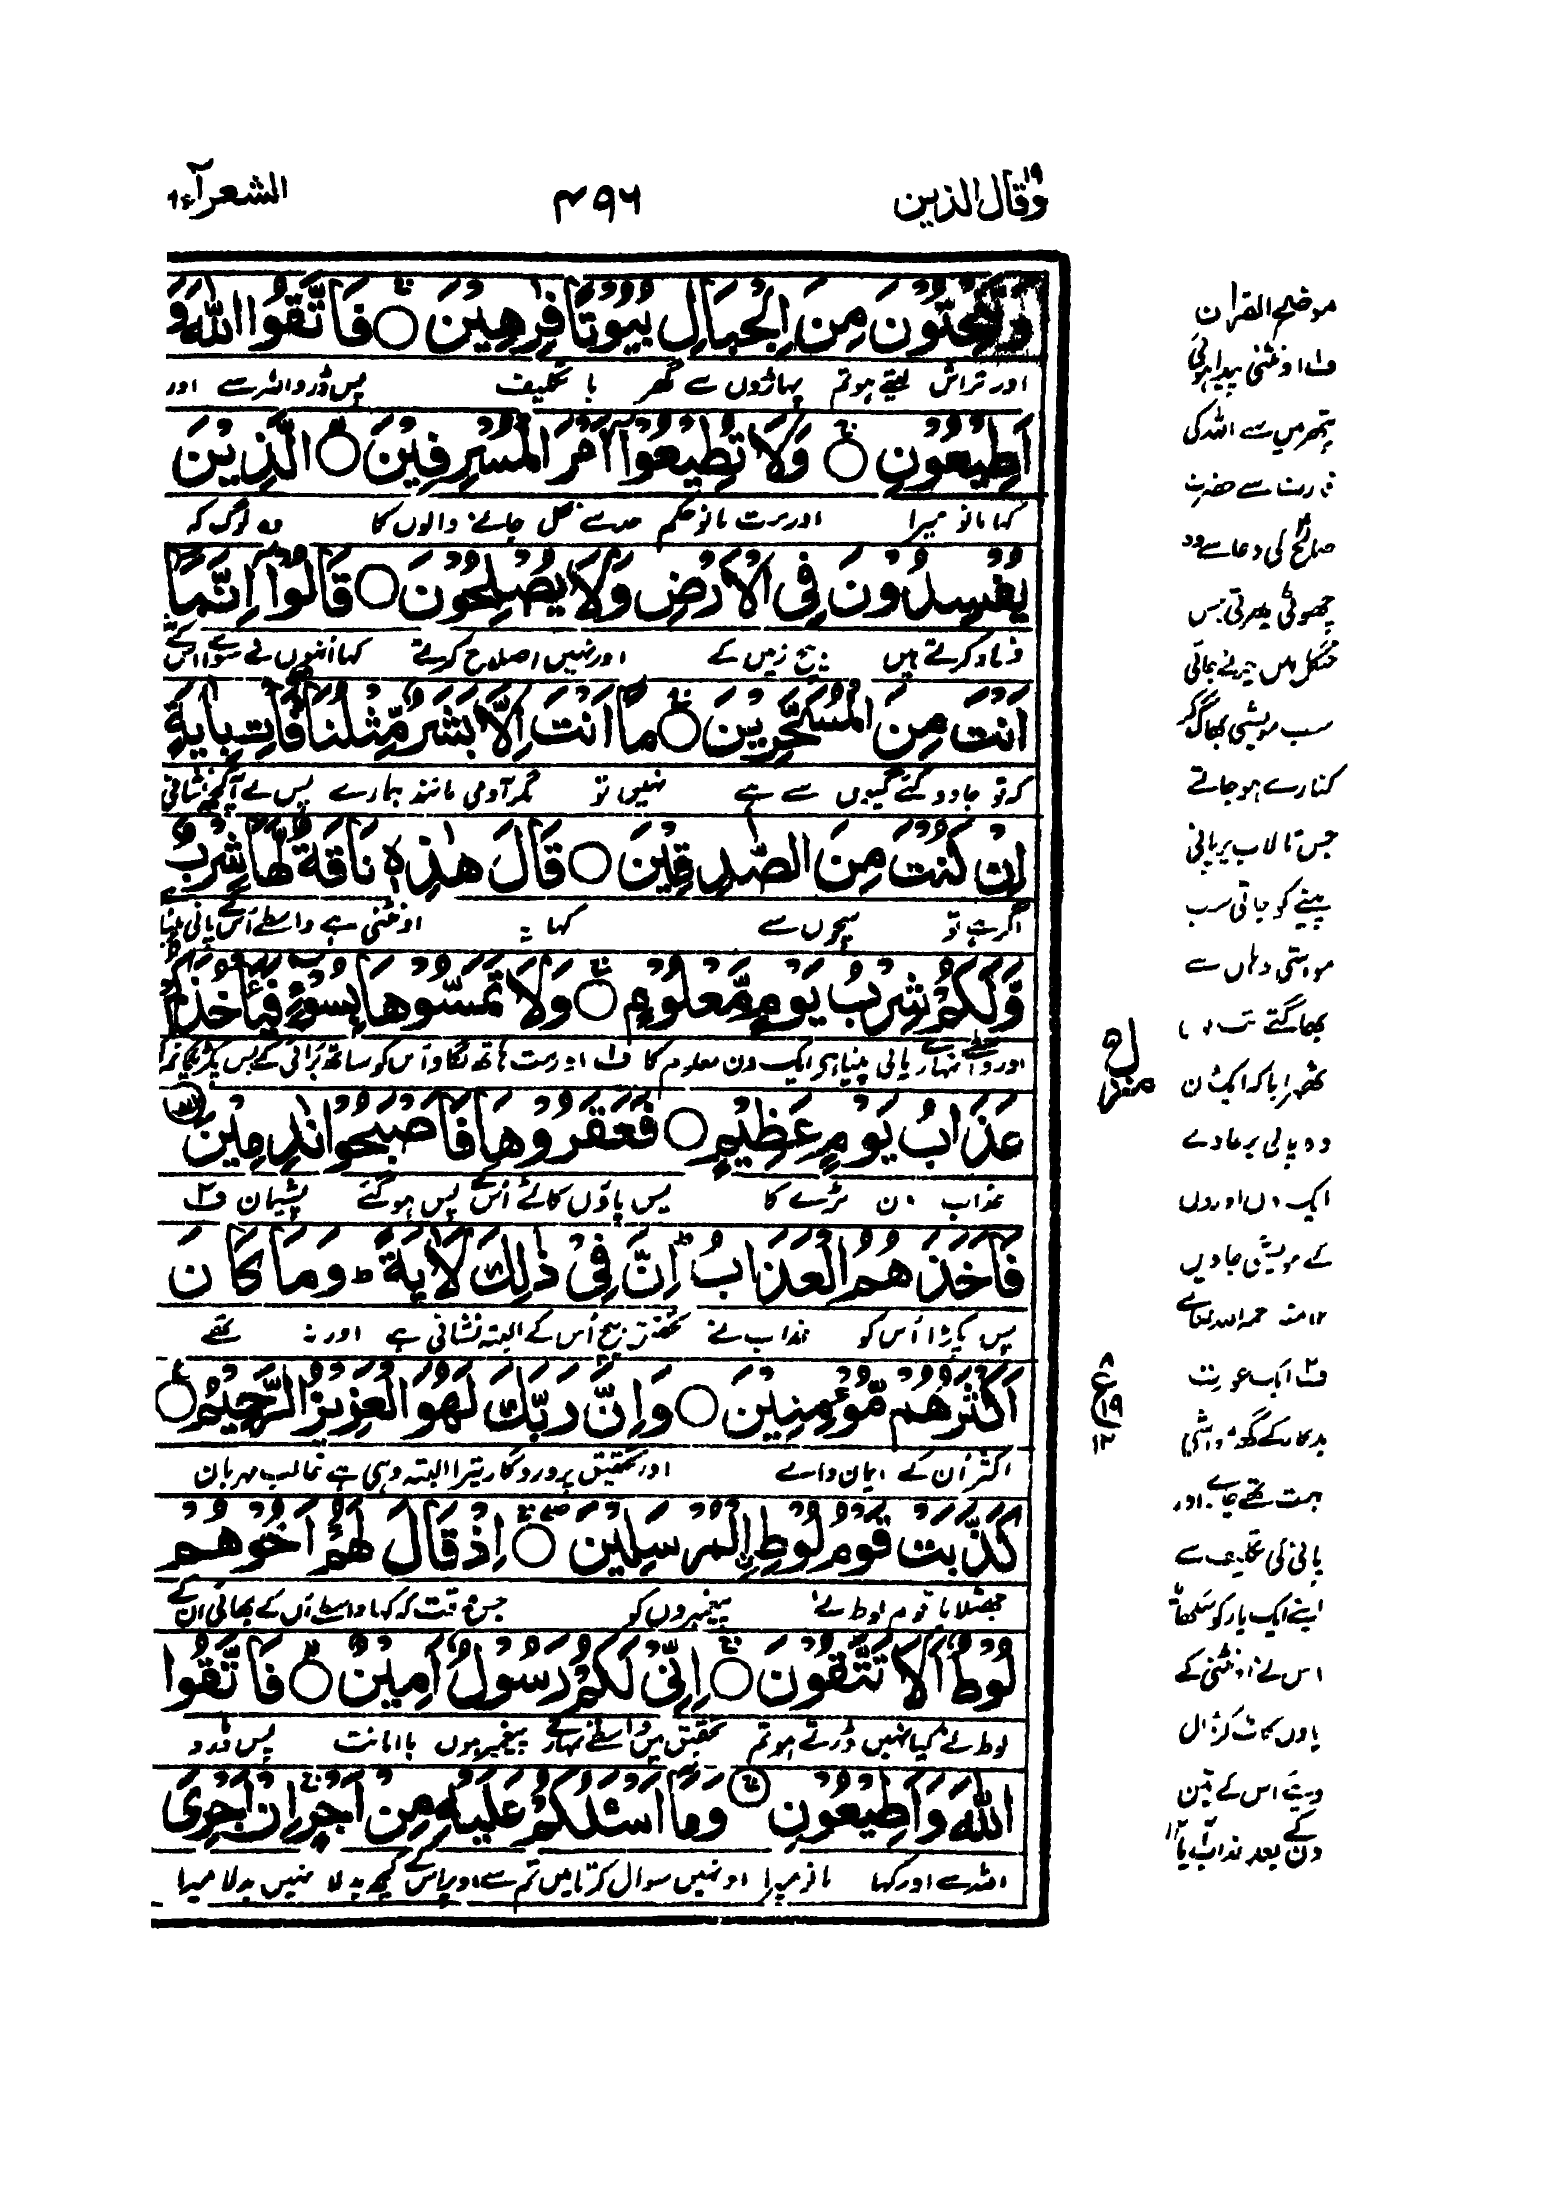 وقال الذین ۱۹
۴۹۶
الشعرآء ۲۶
وَتَنْحِتُوْنَ مِنَ الْجِبَالِ بُيُوْتًا فٰرِهِيْنَ ○ فَاتَّقُوا اللّٰهَ وَ
اور تراش لیتے ہو تم پہاڑوں سے گھر با تکلیف پس ڈرو اللہ سے اور
اَطِيْعُوْنِ ○ وَلَا تُطِيْعُوْٓا اَمْرَ الْمُسْرِفِيْنَ ○ الَّذِيْنَ
کہا مانو میرا اور مت مانو حکم حد سے نکل جانے والوں کا وہ لوگ کہ
يُفْسِدُوْنَ فِى الْاَرْضِ وَلَا يُصْلِحُوْنَ ○ قَالُوْٓا اِنَّمَآ
فساد کرتے ہیں بیچ زمین کے اور نہیں اصلاح کرتے کہا اُنہوں نے سوائے اس کے
اَنْتَ مِنَ الْمُسَحَّرِيْنَ ○ مَآ اَنْتَ اِلَّا بَشَرٌ مِّثْلُنَا فَاْتِ بِاٰيَةٍ
کہ تو جادو کئے گیوں سے ہے نہیں تو مگر آدمی مانند ہمارے پس لے آ کچھ نشانی
اِنْ كُنْتَ مِنَ الصّٰدِقِيْنَ ○ قَالَ هٰذِهٖ نَاقَةٌ لَّهَا شِرْبٌ
اگر ہے تو سچوں سے کہا یہ اونٹنی ہے واسطے اُس کے پانی پینا
وَّلَكُمْ شِرْبُ يَوْمٍ مَّعْلُوْمٍ ○ وَلَا تَمَسُّوْهَا بِسُوْٓءٍ فَيَاْخُذَكُمْ
اور واسطے تمہارے پانی پینا ہر ایک دن معلوم کا ف۱ اور مت ہاتھ لگاؤ اُس کو ساتھ بُرائی کے پس پکڑیگا تم کو
عَذَابُ يَوْمٍ عَظِيْمٍ ○ فَعَقَرُوْهَا فَاَصْبَحُوْا نٰدِمِيْنَ
عذاب دن بڑے کا پس پاؤں کاٹے اُس کے پس ہو گئے پشیمان ف۲
فَاَخَذَهُمُ الْعَذَابُ ؕ اِنَّ فِىْ ذٰلِكَ لَاٰيَةً ؕ وَمَا كَانَ
پس پکڑا اُس کو عذاب نے تحقیق بیچ اُس کے البتہ نشانی ہے اور نہ تھے
اَكْثَرُهُمْ مُّؤْمِنِيْنَ ○ وَاِنَّ رَبَّكَ لَهُوَ الْعَزِيْزُ الرَّحِيْمُ ○
اکثر اُن کے ایمان والے اور تحقیق پروردگار تیرا البتہ وہی ہے غالب مہربان
كَذَّبَتْ قَوْمُ لُوْطِ ۨالْمُرْسَلِيْنَ ○ اِذْ قَالَ لَهُمْ اَخُوْهُمْ
جھٹلایا قوم لوط نے پیغمبروں کو جس وقت کہ کہا واسطے اُن کے بھائی ان کے
لُوْطٌ اَلَا تَتَّقُوْنَ ○ اِنِّىْ لَكُمْ رَسُوْلٌ اَمِيْنٌ ○ فَاتَّقُوا
لوط نے کیا نہیں ڈرتے ہو تم تحقیق میں واسطے تمہارے پیغمبر ہوں با امانت پس ڈرو
اللّٰهَ وَاَطِيْعُوْنِ ○ وَمَآ اَسْئَلُكُمْ عَلَيْهِ مِنْ اَجْرٍ اِنْ اَجْرِىَ
اللہ سے اور کہا مانو میرا اور نہیں سوال کرتا میں تم سے اوپر اس کے کچھ بدلا نہیں بدلا میرا
موضح القرآن
ف۱ اونٹنی پیدا ہوئی
پتھر میں سے اللہ کی
قدرت سے حضرت
صالحؑ کی دعا سے وہ
چھوٹی پھرتی جس
جنگل میں چرنے جاتی
سب مویشی بھاگ کر
کنارے ہو جاتے
جس تالاب پر پانی
پینے کو جاتی سب
مواشی وہاں سے
بھاگتے تب یوں
ٹھہرایا کہ ایک دن
وہ پانی پر جاوے
ایک دن اوروں
کے مویشی جاویں
۱۲ منہ رحمہ اللہ تعالےٰ
ف۲ ایک عورت
بدکار کے گھر مواشی
بہت تھے چارے اور
پانی کی تکلیف سے
اپنے ایک یار کو سکھایا
اس نے اونٹنی کے
پاؤں کاٹ کر ڈال
دیئے اس کے تین
دن کے بعد عذاب آیا ۱۲
۸
ع
۱۹
۱۲